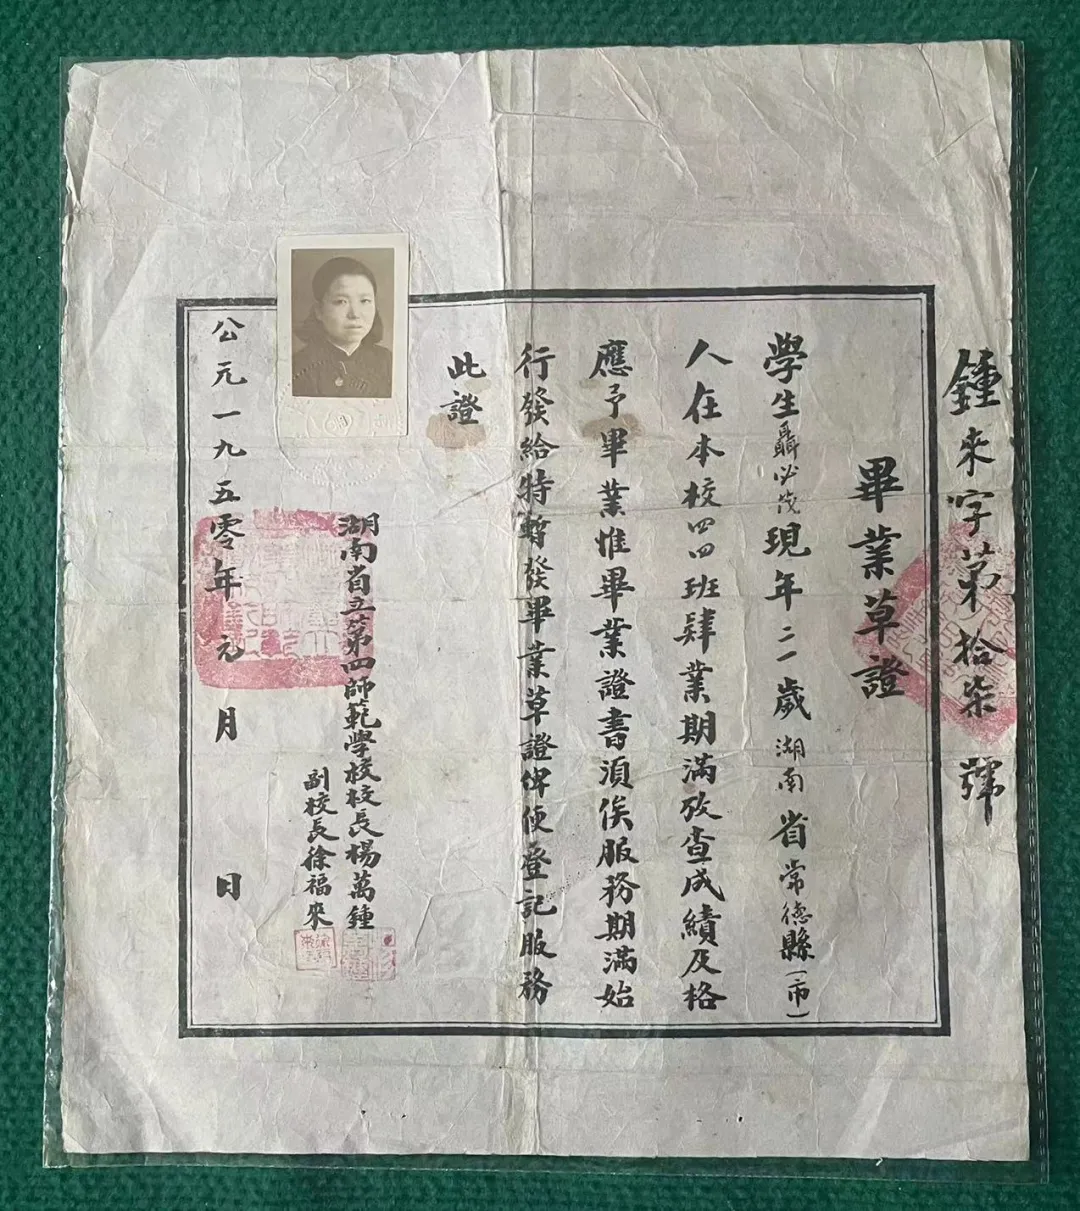 鍾來字第拾柒號
畢業草證
學生聶必茂現年二一歲湖南省常德縣（市）
人在本校四四班肄業期滿攷查成績及格
應予畢業惟畢業證書須俟服務期滿始
行發給特暫發畢業草證俾便登記服務
此證
湖南省立第四師範學校校長楊萬鍾
副校長徐福來
公元一九五零年元月 日